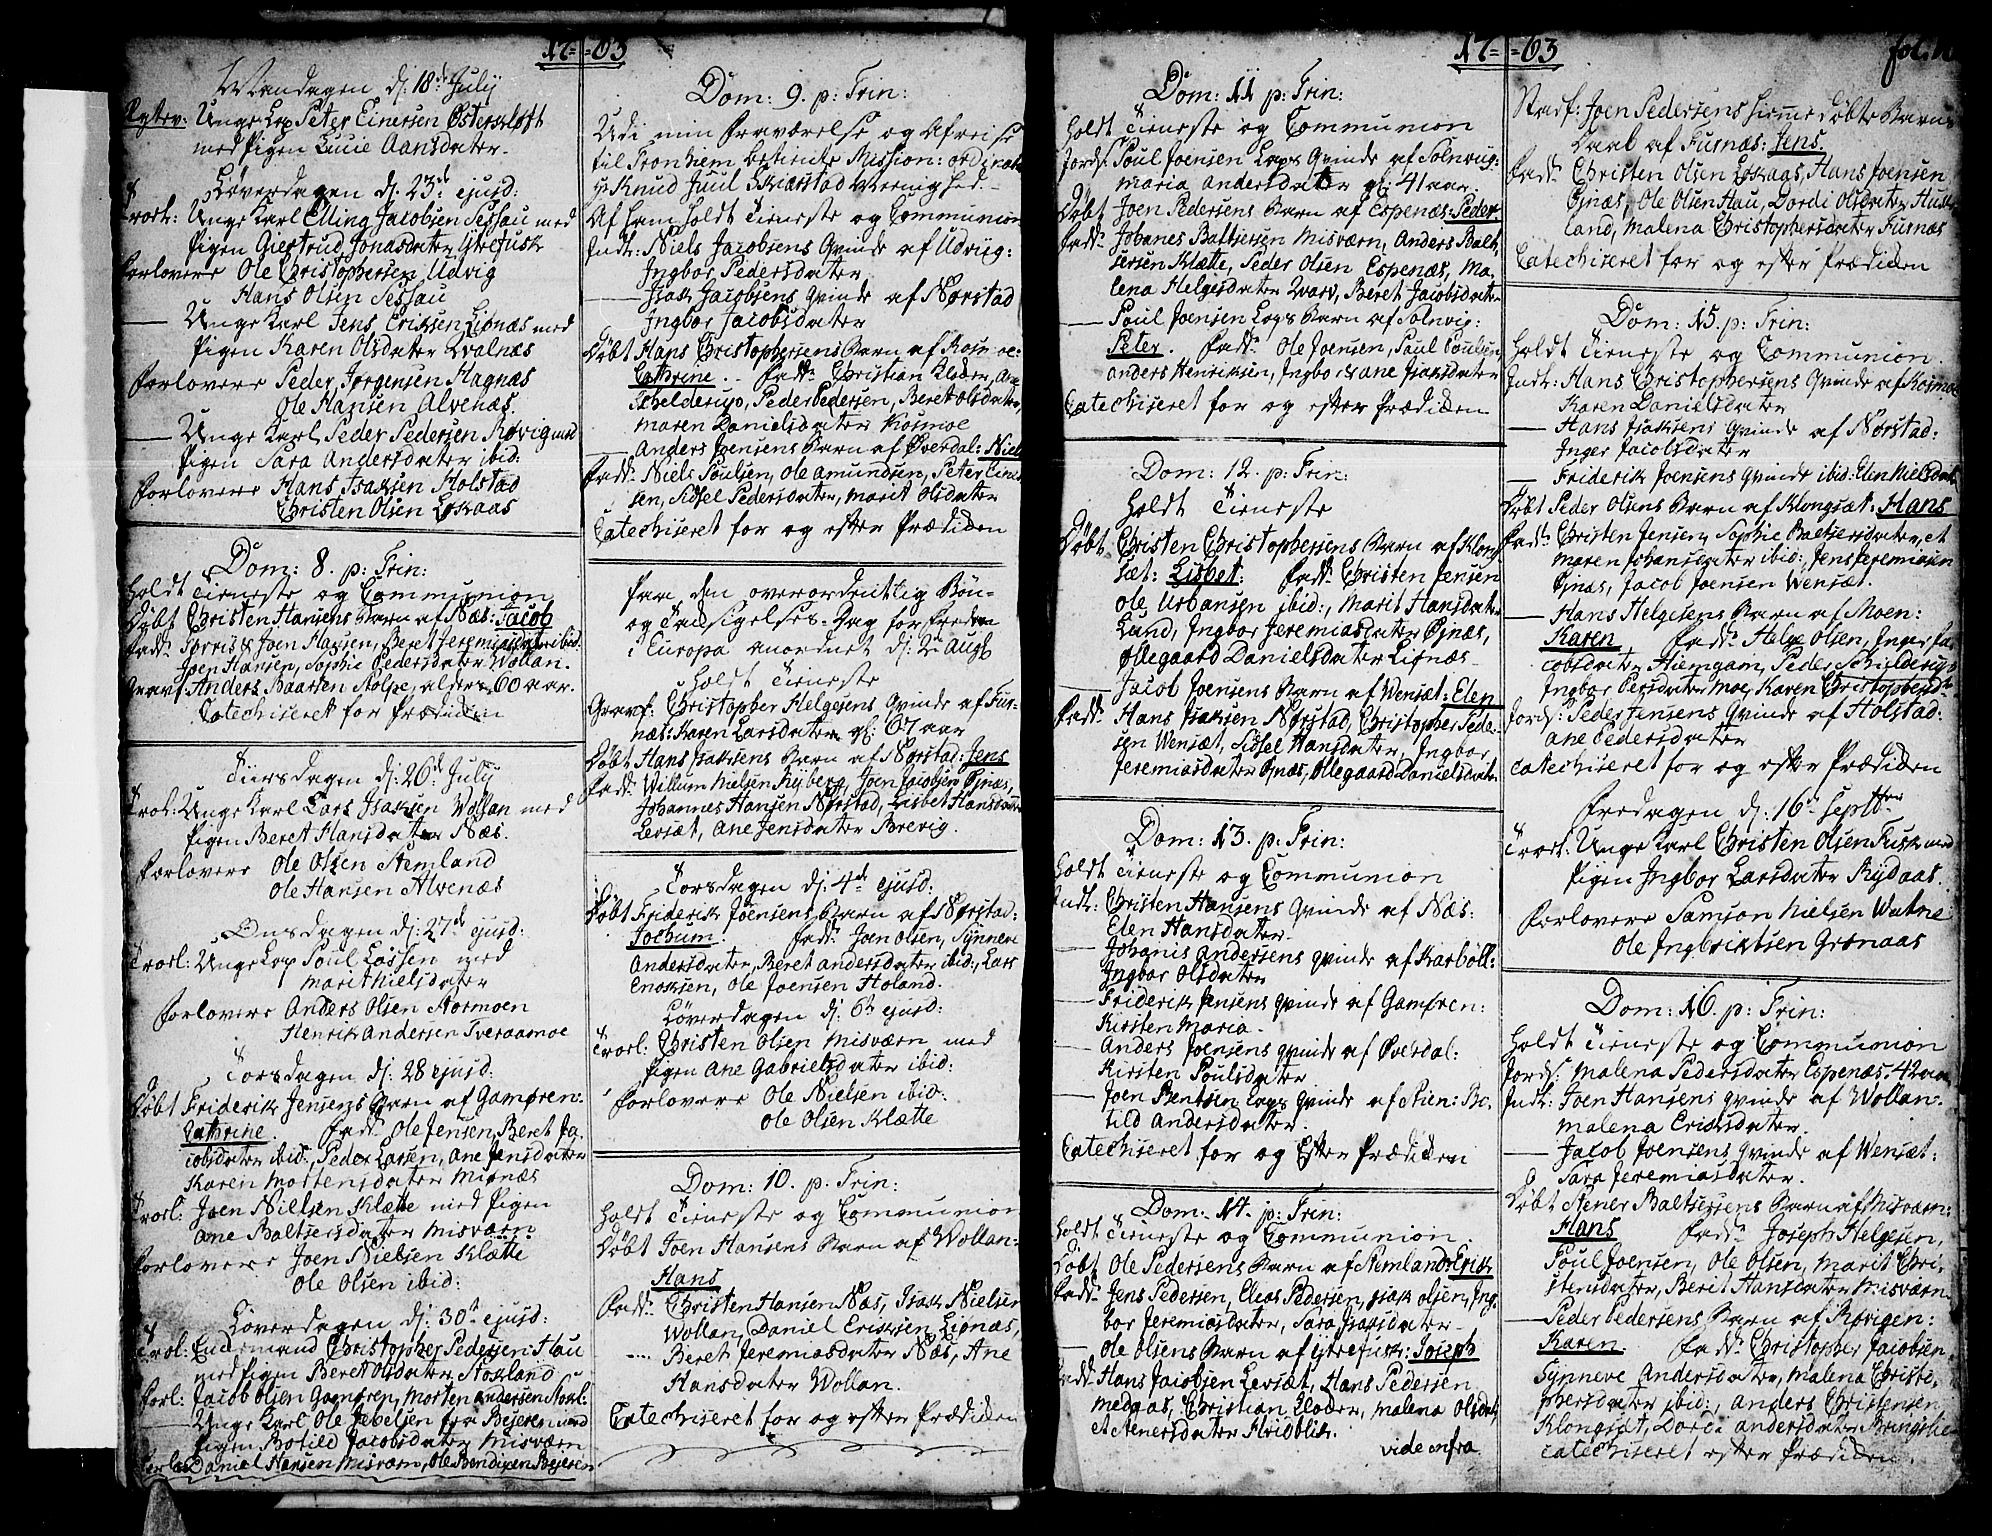 17=63
Mandagen d: 18de July
Unge Lap Peter Einersen Østerkløft
med Pigen Lucie Aansdatter
Løverdagen d: 23de ejusd:
Trorl: Unge Karl Elling Jacobsen Sessau med
Pigen Giertrud Jonasdatter Ytrefusk
Forlovere Ole Christophersen Udvig
Hans Olsen Sessau
— Unge Karl Jens Ericksen Lignæs med
Pigen Karen Olsdatter Qvalnæs
Forlovere Peder Jørgensen Hagnæs
Ole Hansen Alvenæs.
— Unge Karl Peder Pedersen Røvig med
Pigen Sara Andersdatter ibid:
Forlovere Hans Isaksen Holstad
Christen Olsen Løkaas
Dom: 8. p: Trin:
Holdt Tieneste og Communion
Døbt Christen Hansens Barn af Næs: Jacob
Fadd: Torris & Joen Hansen, Beret Jeremiasdatter ibid:
Joen Hansen, Sophie Pedersdatter Wollan.
Gravf: Anders Baarsen Stolpe, alder 60 aar.
Catechiseret for Prædiken
Tiirsdagen d: 26de July
Trorl: Unge Karl Lars Isaksen Wollan med
Pigen Beret Hansdatter Næs.
Forlovere Ole Olsen Stemland
Ole Hansen Alvenæs
Onsdagen d: 27de ejusd:
Trorl: Unge Lap Poul Lassen med
Marit Nielsdatter
Forlovere Anders Olsen Stormoen
Henrik Andersen Tveraamoe
Torsdagen d: 28 ejusd:
Døbt Friderik Jensens Barn af Gamøren:
Cathrine. Fadd: Ole Jensen, Beret Ja-
cobsdatter ibid:, Peder Larsen, Ane Jensdatter
Karen Mortensdatter Misnæs
Trorl: Joen Nielsen Klætte med Pigen
Ane Baltsersdatter Misværn:
Forlovere Joen Nielsen Klætte
Ole Olsen ibid:
Løverdagen d: 30te ejusd:
Trorl: Enckemand Christopher Pedersen Hau
med Pigen Beret Olsdatter Stokland
Forl: Jacob Olsen Gamøren, Morten Andersen Stokl:
— Unge Karl Ole Jebelsen fra Bejeren med
Pigen Botild Jacobsdatter Misværn
Forl: Daniel Hansen Misværn, Ole Bendixen Bejeren
Dom: 9. p: Trin:
Udi min Fraværelse og Afreise
til Tronhiem betiente Mission: ordinate
Hr Knud Juul Skierstad Menighed.
Af ham holdt Tieneste og Communion
Indt: Niels Jacobsens Qvinde af Udviig:
Ingbor Pedersdatter
— Isak Jacobsens Qvinde af Nørstad
Ingbor Jacobsdatter
Døbt Hans Christophersens Barn af Kosmoe:
Cathrine. Fadd: Christian Kloder, Ane
Schelderup, Peder Pedersen, Beret Olsdatter,
Maren Danielsdatter Kosmoe
— Anders Joensens Barn af Øverdal: Niels
Fadd: Niels Poulsen, Ole Amundsen, Peter Einer-
sen, Sidsel Pedersdatter, Marit Olsdatter
Catechiseret for og efter Prædiken
Paa den overordentlig Bøn-
og Taksigelses-Dag for Freden
i Europa anordnet d: 2de Augl
Holdt Tieneste
Gravf: Christopher Helgesens Qvinde af Fur-
næs: Karen Larsdatter gl: 67 aar
Døbt Hans Isaksens Barn af Nørstad: Jens
Fadd: Willum Nielsen Nyberg, Joen Jacobsen Øjnæs,
Johannes Hansen Nørstad, Lisbet Hansdatter
Levsæt, Ane Jensdatter Brevig.
Torsdagen d: 4de ejusd:
Døbt Friderik Joensens Barn af Nørstad:
Jochum. Fadd: Joen Olsen, Synneve
Andersdatter, Beret Andersdatter ibid:, Lars
Enoksen, Ole Joensen Holand.
Løverdagen d: 6te ejusd:
Trorl: Christen Olsen Misværn med
Pigen Ane Gabrielsdatter ibid:
Forlovere Ole Nielsen ibid:
Ole Olsen Klætte
Dom: 10. p: Trin:
Holdt Tieneste og Communion
Døbt Joen Hansens Barn af Wollan:
Hans
Fadd: Christen Hansen Næs, Isak Nielsen
Wollan, Daniel Eriksen Lignæs,
Beret Jeremiasdatter Næs, Ane
Hansdatter Wollan.
Catechiseret for og efter Prædiken
17=63
Dom: 11 p: Trin:
Holdt Tieneste og Communion
Jordf: Poul Joensen Laps Qvinde af Solvig:
Maria Andersdatter gl: 41 aar.
Døbt Joen Pedersens Barn af Espenæs: Peder
Fadd: Johanes Baltsersen Misværn, Anders Balt-
sersen Klætte, Peder Olsen Espenæs, Ma-
lena Helgesdatter Qvarv, Beret Jacobsdatter
— Poul Joensen Laps Barn af Solvig:
Peter. Fadd: Ole Joensen, Paul Poulsen,
Anders Henriksen, Ingbor & Ane Isaksdatter
Catechiseret for og efter Prædiken
Dom: 12. p: Trin:
Holdt Tieneste
Døbt Christen Christophersens Barn af Klong-
sæt: Lisbet. Fadd: Christen Jensen
Ole Urbansen ibid:, Marit Hansdatter
Lund, Ingbor Jeremiasdatter Øjnæs,
Ollegaard Danielsdatter Lignæs
— Jacob Joensens Barn af Wensæt: Elen
Fadd: Hans Isaksen Nørstad, Christopher Peder-
sen Wensæt, Sissel Hansdatter, Ingbor
Jeremiasdatter Øjnæs, Ollegaard Danielsdatter
Dom: 13. p: Trin:
Holdt Tieneste og Communion
Indt: Christen Hansens Qvinde af Næs:
Elen Hansdatter
— Johanis Andersens Qvinde af Karbøll:
Ingbor Olsdatter
— Friderik Jensens Qvinde af Gamøren:
Kirsten Maria
— Anders Joensens Qvinde af Øverdal:
Kirsten Poulsdatter
— Joen Bentsen Laps Qvinde af Stien: Bo-
tild Andersdatter.
Catechiseret for og Efter Prædiken
Dom: 14. p: Trin:
Holdt Tieneste og Communion
Døbt Ole Pedersens Barn af Stemland: Erick
Fadd: Jens Pedersen, Elias Pedersen, Isak Olsen, Ing-
bor Jeremiasdatter, Sara Isaksdatter
— Ole Olsens Barn af Ytrefusk: Joseph
Fadd: Hans Jacobsen Levsæt, Hans Pedersen
Medaas, Christian Kloder, Malena Olsdat:
et Stenersdatter Hridblik.
vide infra
fol:
Stadf: Joen Pedersens hiemedøbte Barns
Daab af Furnæs: Jens.
Fadd: Christen Olsen Løkaas, Hans Joensen
Øjnæs, Ole Olsen Hau, Dordi Olsdatter Hus-
land, Malena Christophersdatter Furnæs
Catechiseret for og efter Prædiken
Dom: 15. p: Trin:
Holdt Tieneste og Communion.
Indt: Hans Christophersens Qvinde af Kosmoe
Karen Danielsdatter
— Hans Isaksens Qvinde af Nørstad:
Inger Jacobsdatter
— Friderik Joensens Qvinde ibid: Elen Nielsdatt:
Døbt Peder Olsens Barn af Klongsæt: Hans
Fadd: Christen Jensen, Sophie Baltsersdatter, et
Maren Johansdatter ibid:, Jens Jeremiasen
Øjnæs, Jacob Joensen Wensæt.
— Hans Helgesens Barn af Moen:
Karen Fadd: Helge Olsen, Inger Ja-
cobsdatter Humgam, Peder Schielderup
Ingbor Persdatter Moe, Karen Christophersd:
Jordf: Peder Jensens Qvinde af Holstad:
Ane Pedersdatter
Catechiseret for og efter Prædiken
Fredagen d: 16de Septbr
Trorl: Unge Karl Christen Olsen Fusk med
Pigen Ingbor Larsdatter Rydaas.
Forlovere Samson Nielsen Watne
Ole Ingbriktsen Grønaas
Dom: 16. p: Trin:
Holdt Tieneste og Communion
Jordf: Malena Pedersdatter Espenæs. 42 aar
Indt: Joen Hansens Qvinde af Wollan.
Malena Ericksdatter.
— Jacob Joensens Qvinde af Wensæt:
Sara Jeremiasdatter.
Døbt Stener Baltsersens Barn af Misværn:
Hans Fadd: Joseph Helgesen,
Poul Joensen, Ole Olsen, Marit Chri-
stensdatter, Berit Hansdatter Misværn
— Peder Pedersens Barn af Røvigen:
Karen. Fadd: Christopher Jacobsen,
Synneve Andersdatter, Malena Christo-
phersdatter ibid:, Anders Christensen
Klongsæt, Dorte Andersdatter Bringslie
Catechiseret efter Prædiken.